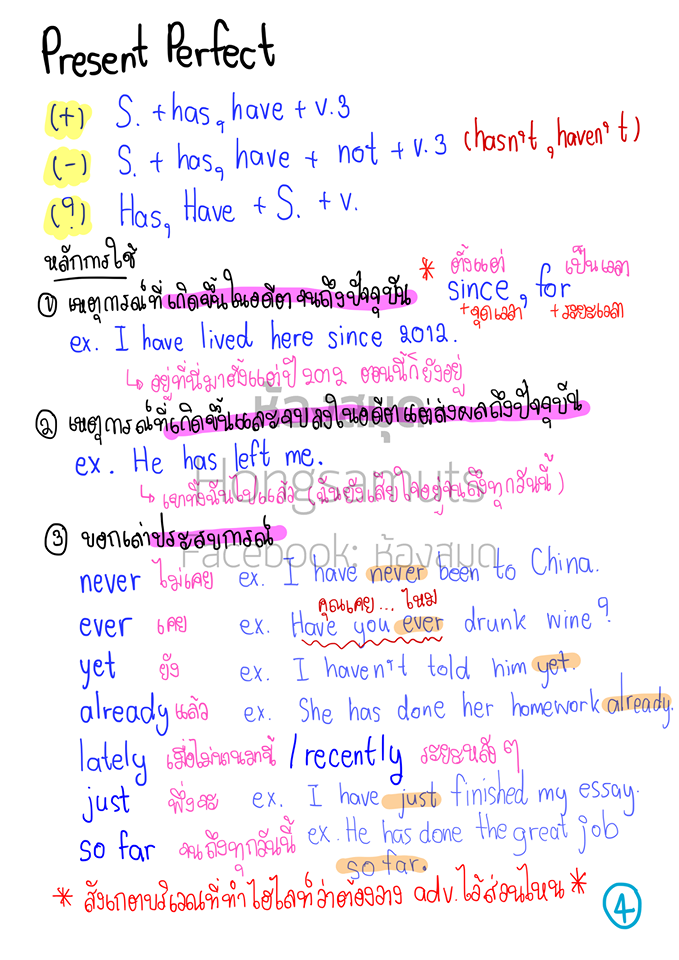 Present Perfect
(+) S. + has, have + v.3
(-) S. + has, have + not + v.3 (hasn't, haven't)
(?) Has, Have + S. + v.
หลักการใช้
① เหตุการณ์ที่เกิดขึ้นในอดีตจนถึงปัจจุบัน
* ตั้งแต่ เป็นเวลา
since, for
+จุดเวลา +ระยะเวลา
ex. I have lived here since 2012.
↳ อยู่ที่นี่มาตั้งแต่ปี 2012 ตอนนี้ก็ยังอยู่
ห้องสมุด
② เหตุการณ์ที่เกิดขึ้นและจบลงในอดีตแต่ส่งผลถึงปัจจุบัน
ex. He has left me.
Hongsamuts
↳ เขาทิ้งฉันไปแล้ว (ฉันยังเสียใจอยู่จนถึงทุกวันนี้)
③ บอกเล่าประสบการณ์
Facebook: ห้องสมุด
never ไม่เคย ex. I have never been to China.
คุณเคย... ไหม
ever เคย ex. Have you ever drunk wine?
yet ยัง ex. I haven't told him yet.
already แล้ว ex. She has done her homework already.
lately เมื่อไม่นานมานี้ / recently ระยะหลังๆ
just พึ่งจะ ex. I have just finished my essay.
so far จนถึงทุกวันนี้ ex. He has done the great job
so far.
* สังเกตบริเวณที่ทำไฮไลท์ว่าต้องวาง adv. ไว้ส่วนไหน *
4